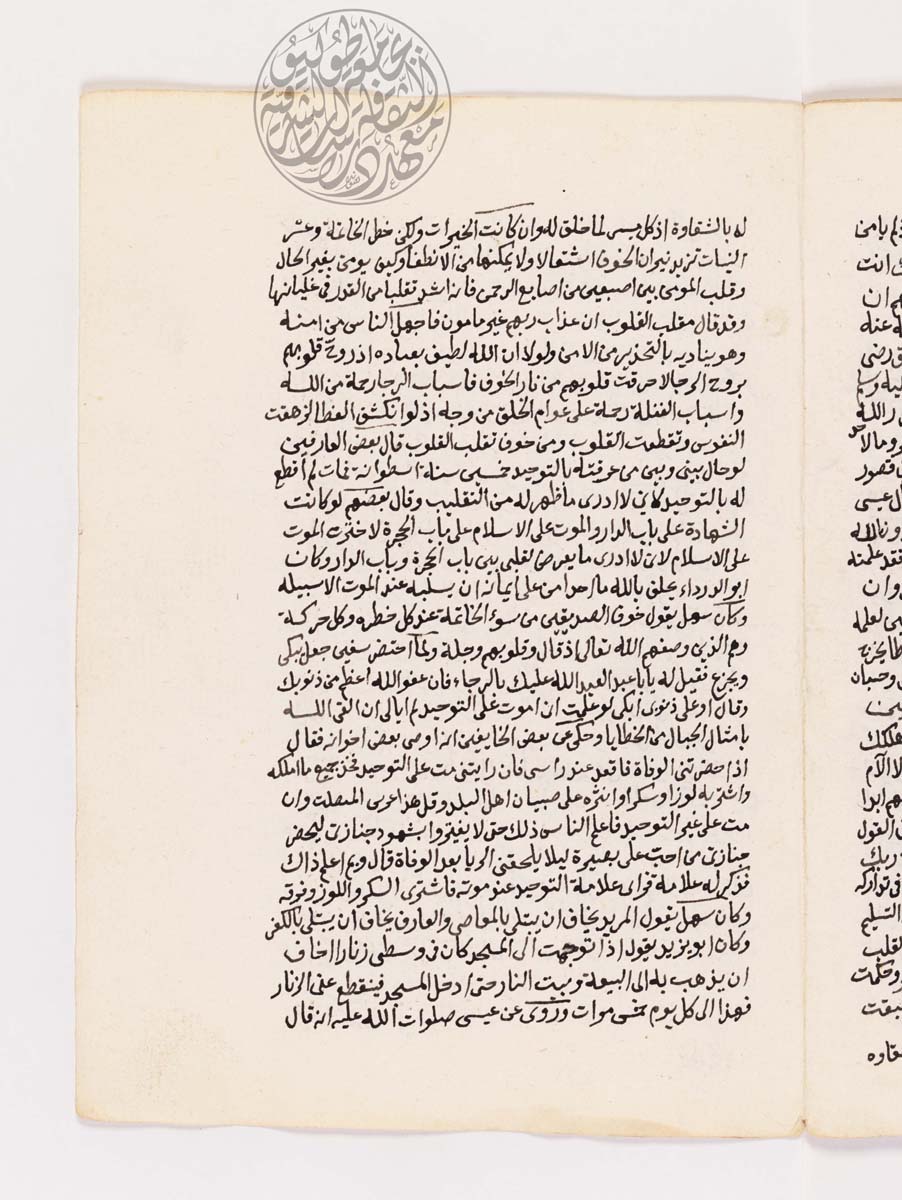 جامعة طوكيو
معهد دراسات الثقافة الشرقية
له بالشقاوة اذ كل ميسر لما خلق له وان كانت الخيرات ولكن خطر الخاتمة وعسر
الثبات تزيد نيران الخوف اشتعالا ولا يمكنها من الانطفا وكيف يومن بغير الحال
وقلب المومن بين اصبعين من اصابع الرحمن فانه اشد تقلبا من القدر في غليانها
وقد قال مقلب القلوب ان عذاب ربهم غير مامون فاجهل الناس من امنه
وهو يناديه بالتحذير من الامن ولولا ان الله لطيف بعباده اذ روح قلوبهم
بروح الرجا لاحرقت قلوبهم من نار الخوف فاسباب الرجا رحمة من الله
واسباب الغفلة رحمة على عوام الخلق من وجه اذ لو انكشف الغطا لزهقت
النفوس وتقطعت القلوب ومن خوف تقلب القلوب قال بعض العارفين
لو حال بيني وبين من عرفته بالتوحيد خمسين سنة اسطوانة فمات لم اقطع
له بالتوحيد لاني لا ادرى ما ظهر له من التقليب وقال بعضهم لو كانت
الشهادة على باب الدار والموت على الاسلام على باب الحجرة لاخترت الموت
على الاسلام لاني لا ادرى ما يعرض لقلبي بين باب الحجرة وباب الدار وكان
ابو الدرداء يحلف بالله ما احد امن على ايمانه ان يسلبه عند الموت الا سيبله
وكان سهل يقول خوف الصديقين من سوء الخاتمة عند كل خطره وكل حركة
وهم الذين وصفهم الله تعالى اذ قال وقلوبهم وجلة ولما احتضر سفين جعل يبكى
ويجزع فقيل له يابا عبد الله عليك بالرجاء فان عفو الله اعظم من ذنوبك
وقال او على ذنوبى ابكى لو علمت ان اموت على التوحيد لم ابالى ان القى الله
بامثال الجبال من الخطايا وحكى عن بعض الخايفين انه اوصى بعض اخوانه فقال
اذا حضرتني الوفاة فاقعد عند راسى فان رايتنى مت على التوحيد فخذ جميع ما املكه
واشتر به لوزا وسكرا وانثره على صبيان اهل البلد وقل هذا عرس المنفلت وان
مت على غير التوحيد فاعلم الناس ذلك حتى لا يغتروا بشهود جنازتى ليحضر
جنازتى من احب على بصيرة ليلا يلحقنى الريا بعد الوفاة قال وبم اعلم ذاك
فذكر له علامة فراى علامة التوحيد عند موته فاشترى السكر واللوز وفرقه
وكان سهل يقول المريد يخاف ان يبتلى بالمعاصى والعارف يخاف ان يبتلى بالكفر
وكان ابو يزيد يقول اذا توجهت الى المسجد كان فى وسطى زنارا اخاف
ان يذهب به الى البيعة وبيت النار حتى ادخل المسجد فينقطع عنى الزنار
فهذا الى كل يوم خمس مرات وروى عن عيسى صلوات الله عليه انه قال